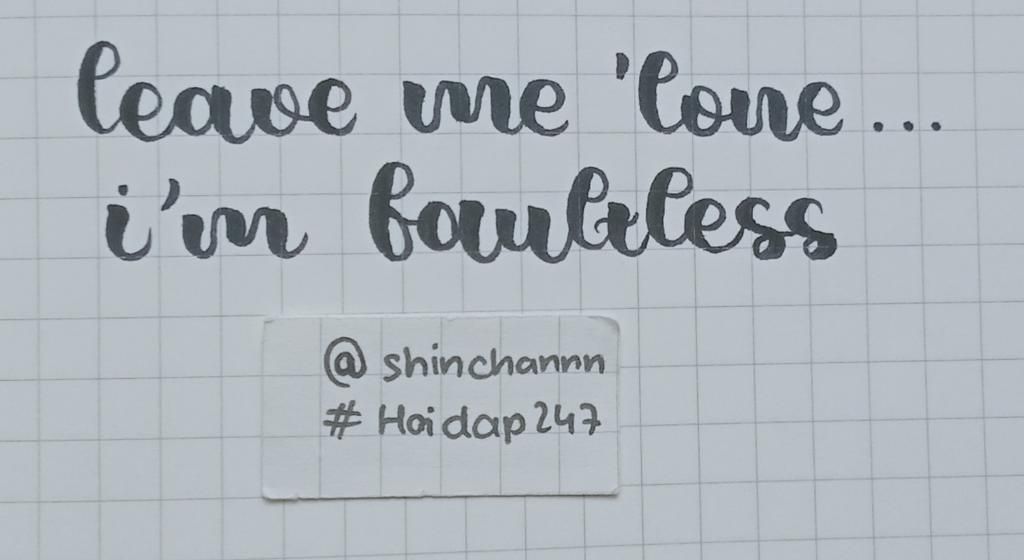 leave me 'lone...
i'm faultless
@shinchannn
#Hoidap247